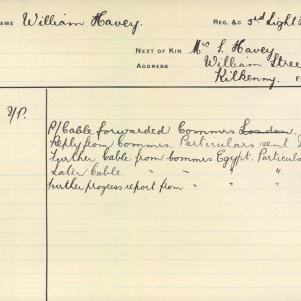 NAME William Havey. REG. &C 3rd Light
NEXT OF KIN Mrs S. Havey
ADDRESS William Stree
Kilkenny.
P/Cable forwarded Commrs London.
Reply from Commrs. Particulars sent
Further Cable from Commrs Egypt. Particula
Later Cable " " " "
Further progress report from " "